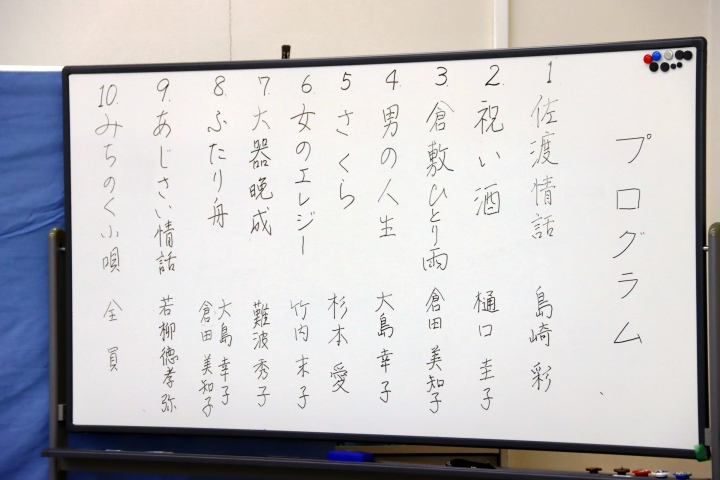 プログラム
1. 佐渡情話 島崎 彩
2. 祝い酒 樋口 圭子
3. 倉敷ひとり雨 倉田 美知子
4. 男の人生 大島 幸子
5 さくら 杉本 愛
6. 女のエレジー 竹内 末子
7. 大器晩成 難波 秀子
8. ふたり舟 大島 幸子
倉田 美知子
9. あじさい情話 若柳徳孝弥
10. みちのく小唄 全員